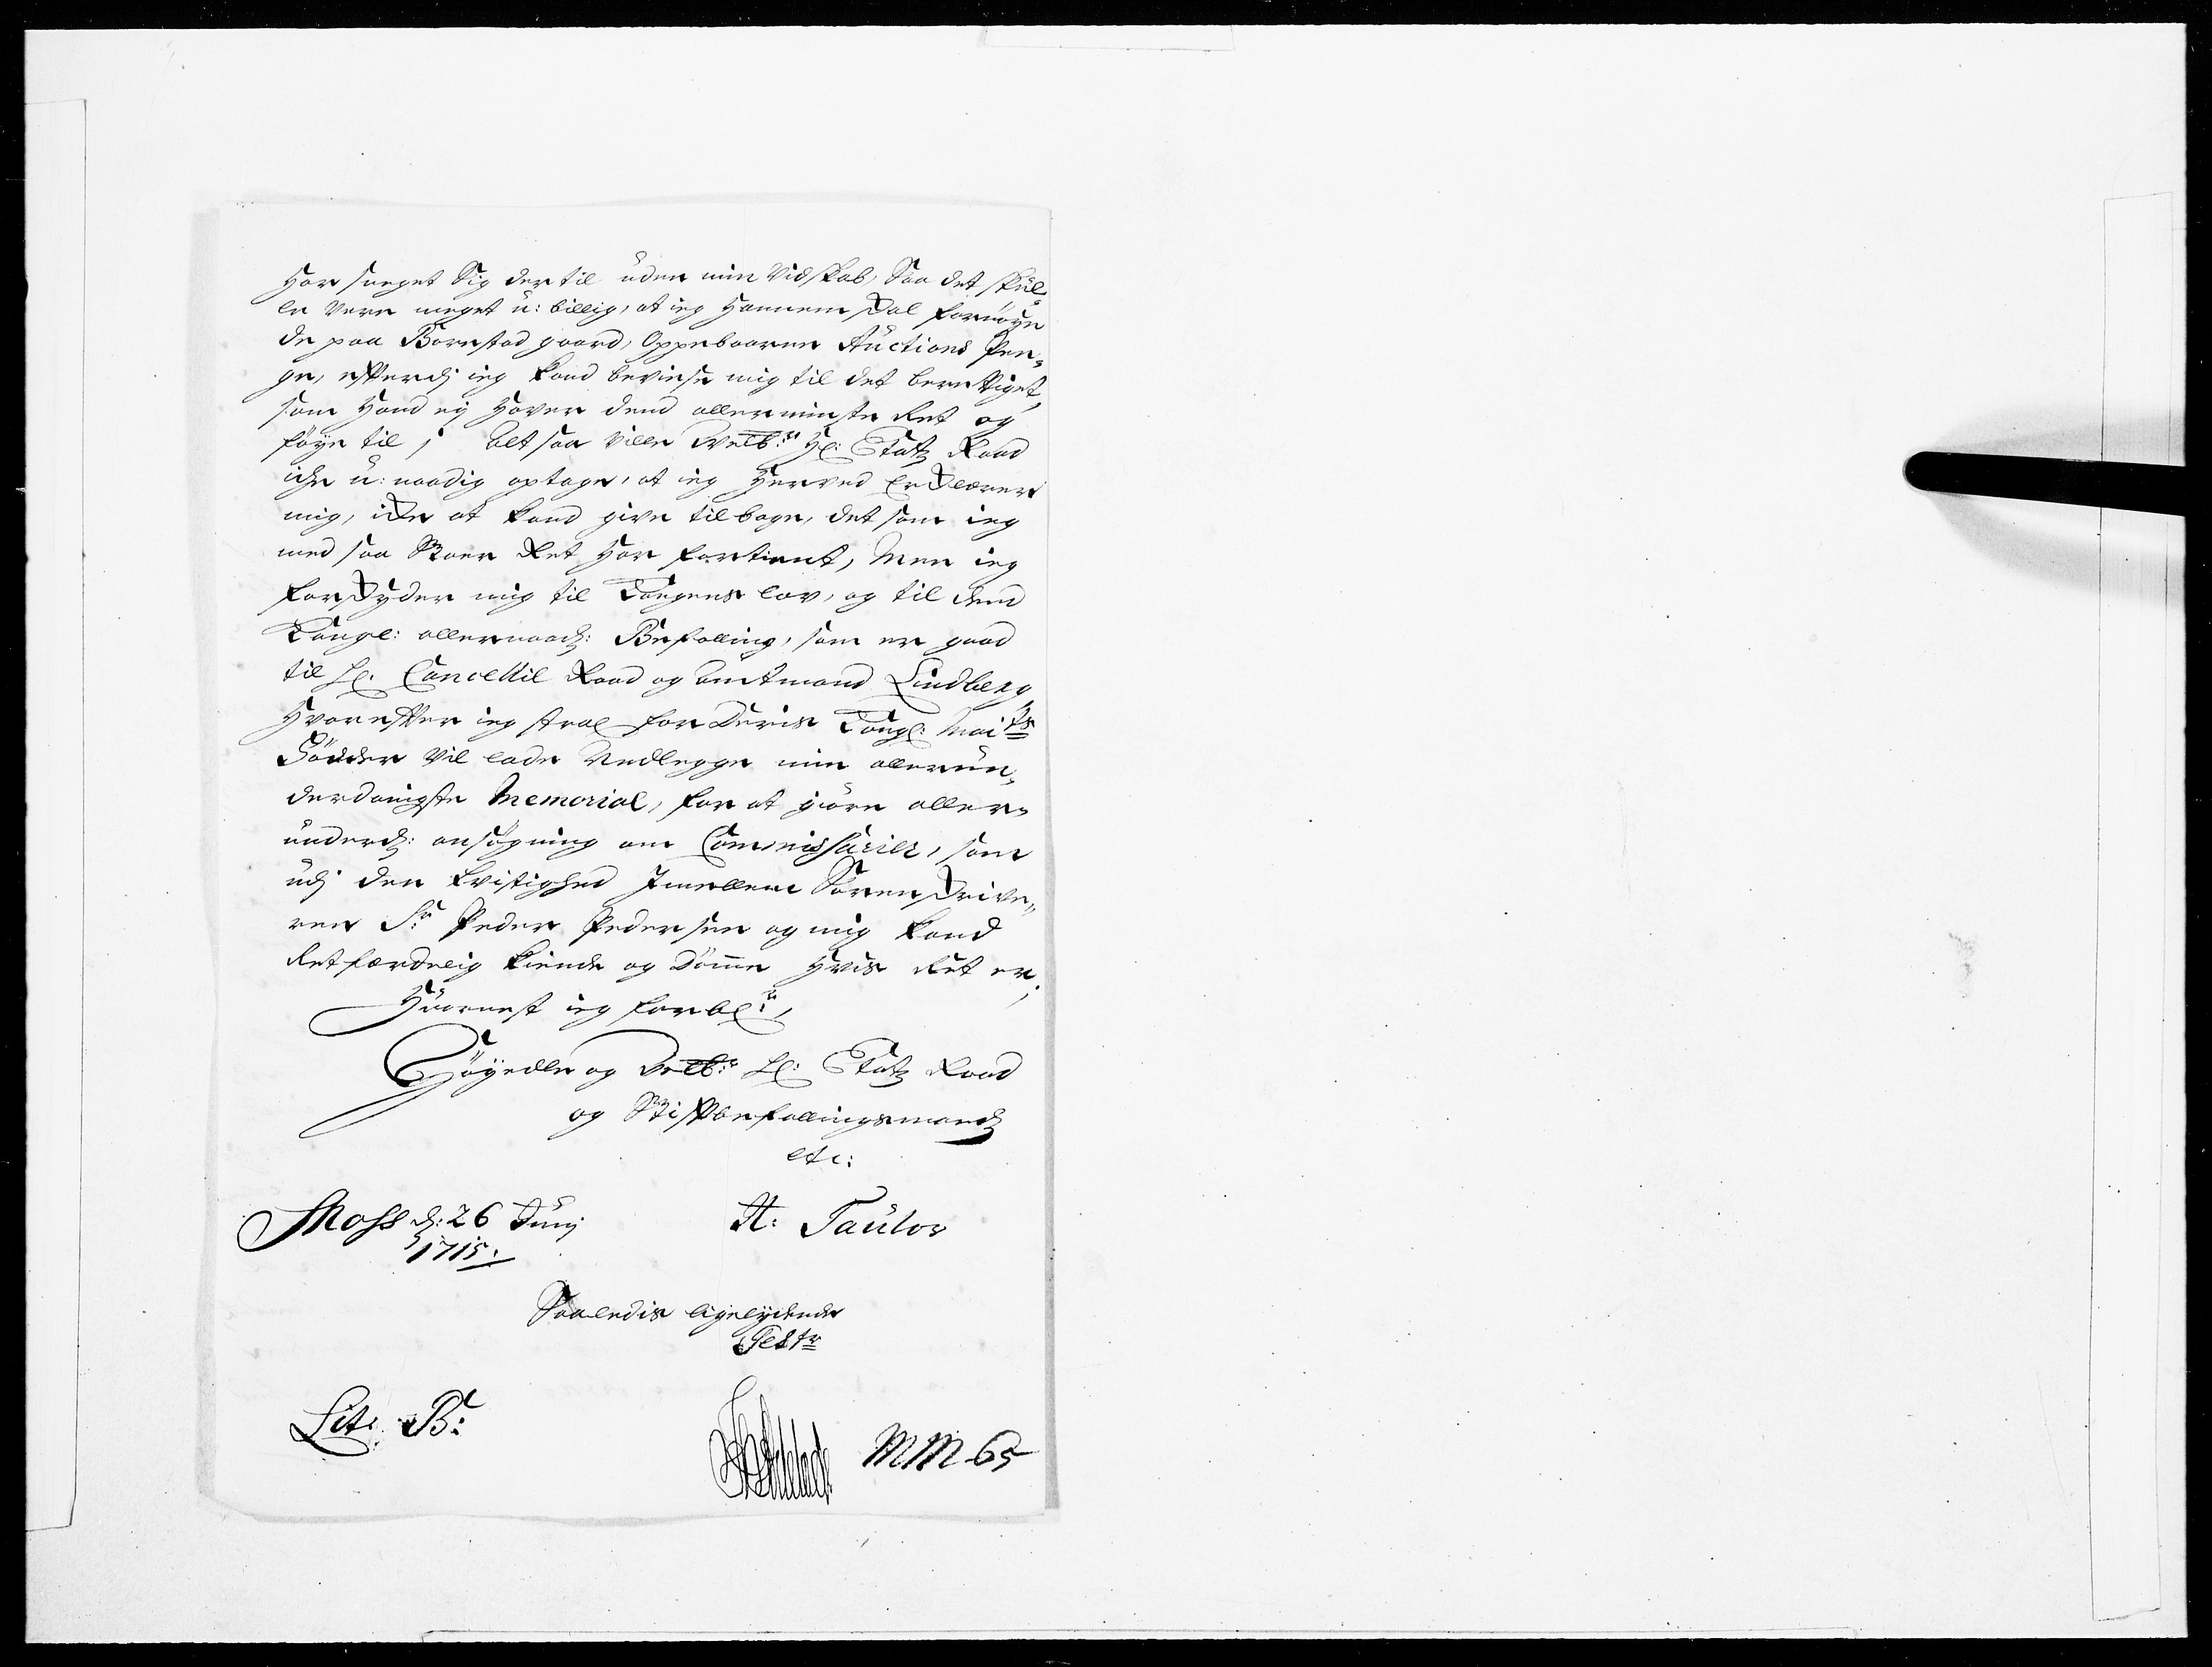 har svoget Sig dertil uden min Vidskab, Saa det skul-
le Vere meget u: billig, at ieg hannem skal fornøye
de paa Borestad gaard, Oppebaarne Auctions Pen-
ge, efterdj ieg kand beviese mig til det berettiget,
som hand ey haver dend allerminste Ret og
føye til; alt saa ville Welb:ne Hl: Etatz Raad
iche u: naadig optage, at ieg herved Erklærer
mig, icke at kand give tilbage, det som ieg
med saa Stoer Ret har fortient, Men ieg
forskyder mig til Kongens lov, og til dend
Kongl: allernaad: Befalling, som er gaad
til Hl. Cancellie Raad og Amtmand Lindberg
Hvorefter ieg strax for Deris Kongl: Mai:ts
Fødder vil lade Nedlegge min allerun-
derdanigste Memorial, for at giøre aller-
underd: ansøgning om Commissarier, som
udj den tvistighed Jmellem Sorenskrive-
ren Sr Peder Pedersen og mig kand
Retfærdelig kiende og Dømme hvis Ret er;
Hvornest ieg forbl:r,
Høyædle og Velb:r Hl: Etatz Raad
og Stiftbefallingsmand
etc:
Moss d: 26 Junj A: Taulov
1715.
Saaledis ligelydende
Test:r
Lit: B:
MM 65